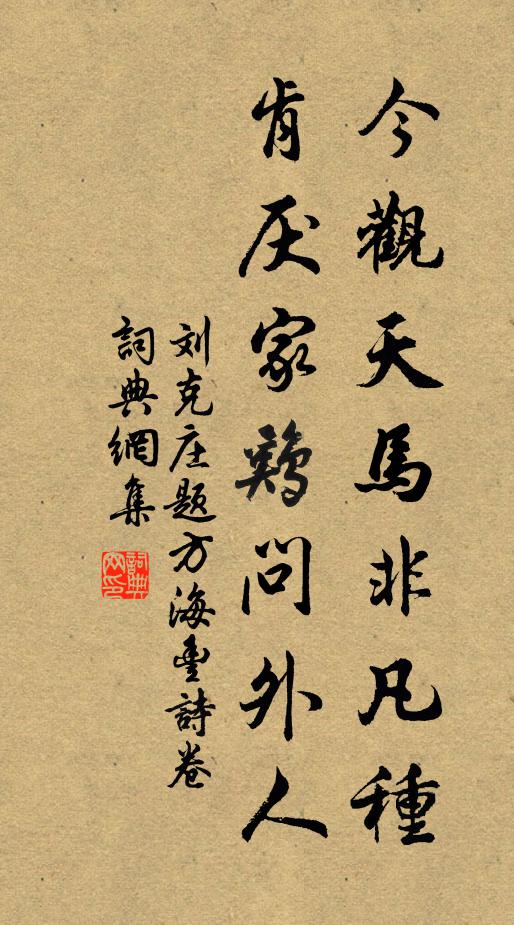 今觀天馬非凡種
肯厌家鷄問外人
刘克庄题方海豊詩卷
詞典網集
詞典網印